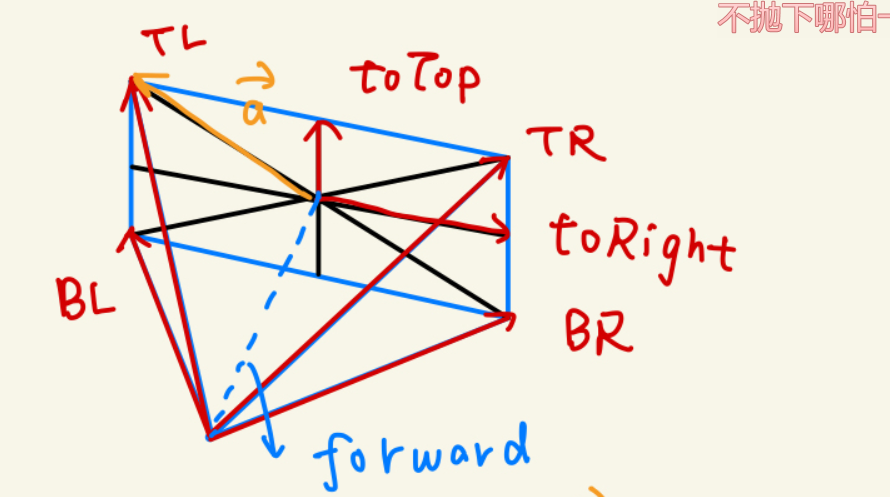 不抛下哪怕一
TL
a
toTop
TR
toRight
BL
BR
forward